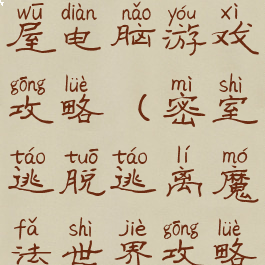 wū diàn nǎo yóu xì
屋电脑游戏
gōng lüè mì shì
攻略（密室
táo tuō táo lí mó
逃脱逃离魔
fǎ shì jiè gōng lüè
法世界攻略